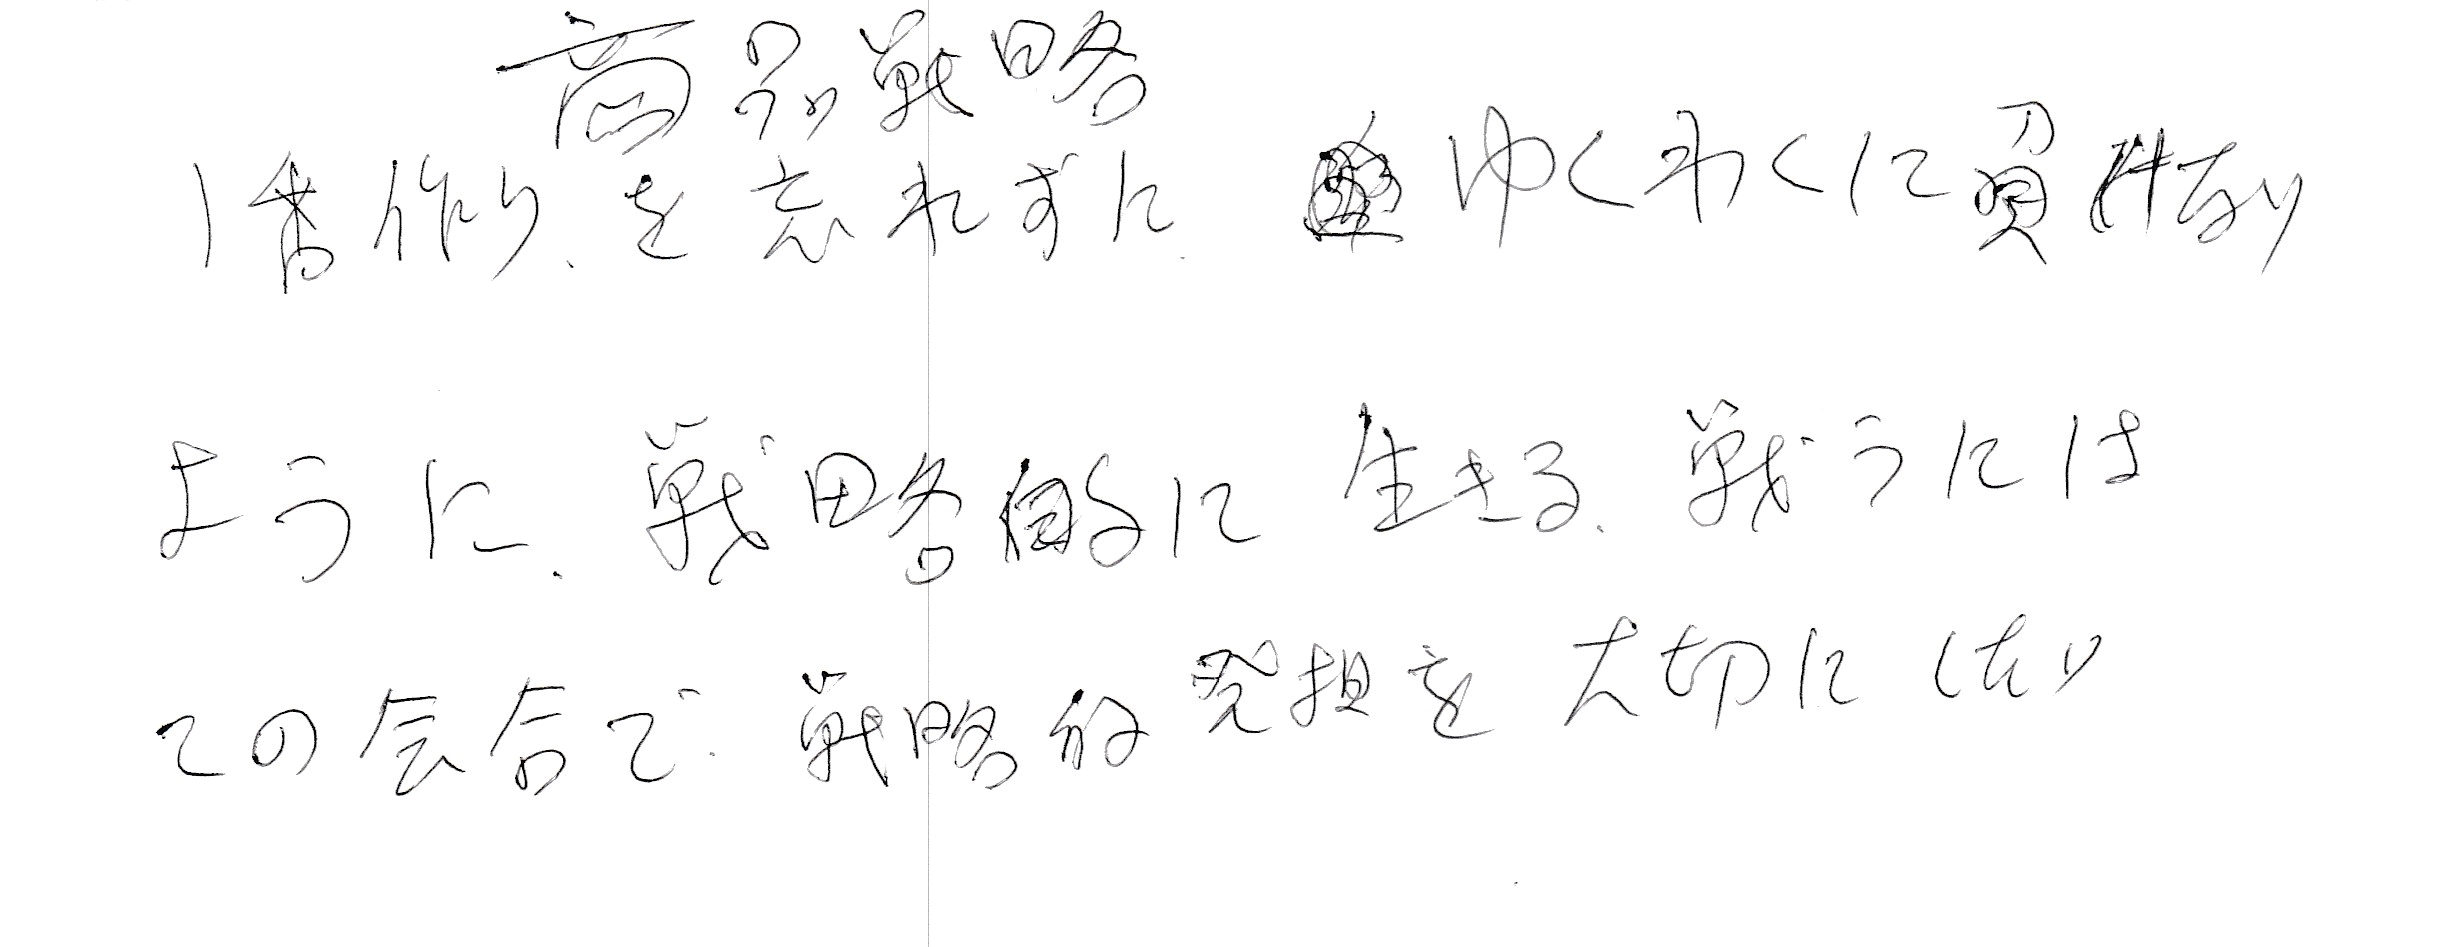 商品戦略
1番作り、を忘れずに、ゆくわくに負けない
ように、戦略的に生きる、戦うには
この会合で、戦略的発想を大切にしたい